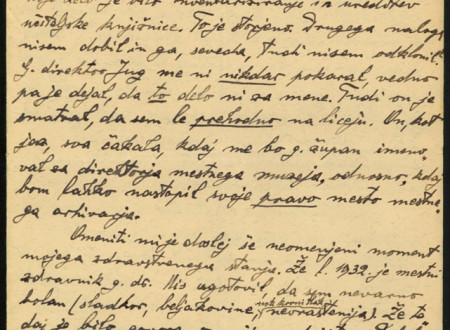 delo je bilo inventariziranje in ureditev
učiteljske knjižnice. To je storjeno. Drugega naloga
nisem dobil in ga, seveda, tudi nisem odklonil.
G. direktor Jug me ni nikdar pokaral, vedno
pa je dejal, da to delo ni za mene. Tudi on je
smatral, da sem le prehodno na liceju. On, kot
jaz, sva čakala, kdaj me bo g. župan imeno,
val za direktorja mestnega muzeja, odnosno, kdaj
bom lahko nastopil svoje pravo mesto mestne,
ga arhivarja.
Omeniti mi je doslej še neomenjeni moment
mojega zdravstvenega stanja. Že l. 1932. je mestni
zdravnik g. dr. Mis ugotovil, da sem nevarno
bolan (sladkor, beljakovine, visok krvni tlak, nevrastenija). Že to,
daj je bilo